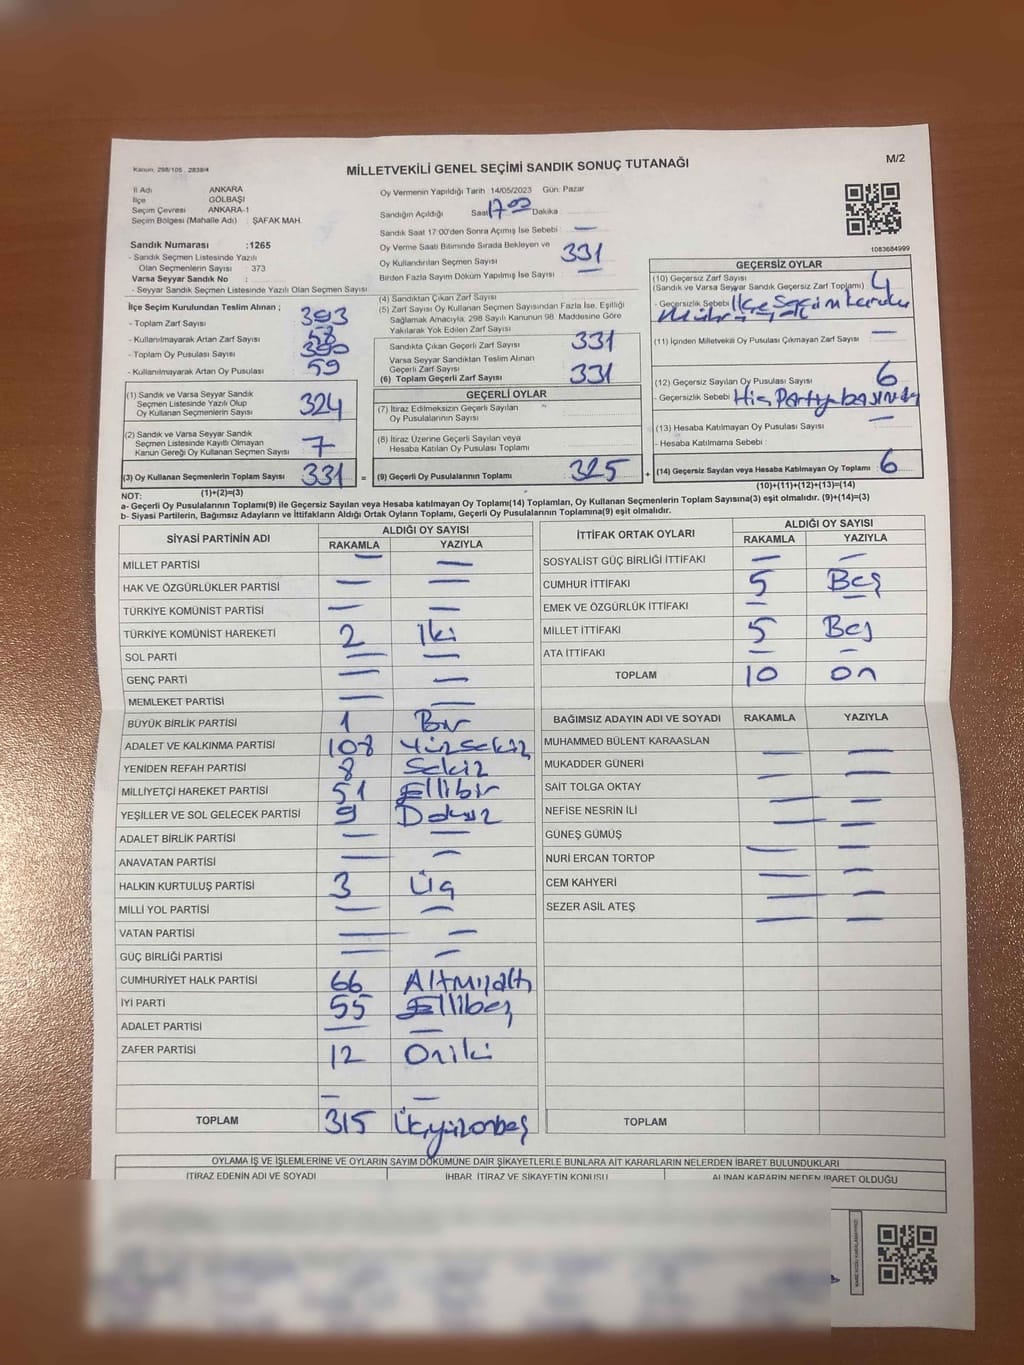 Kanun: 298/105 , 2839/4
MİLLETVEKİLİ GENEL SEÇİMİ SANDIK SONUÇ TUTANAĞI
M/2
İl Adı ANKARA
İlçe GÖLBAŞI
Seçim Çevresi ANKARA-1
Seçim Bölgesi (Mahalle Adı) : ŞAFAK MAH.
Sandık Numarası :1265
- Sandık Seçmen Listesinde Yazılı
Olan Seçmenlerin Sayısı : 373
Varsa Seyyar Sandık No :
- Seyyar Sandık Seçmen Listesinde Yazılı Olan Seçmen Sayısı
Oy Vermenin Yapıldığı Tarih :14/05/2023 Gün: Pazar
Sandığın Açıldığı Saat 17 00 Dakika :
Sandık Saat 17:00'den Sonra Açımış İse Sebebi : —
Oy Verme Saati Bitiminde Sırada Bekleyen ve
Oy Kullandırılan Seçmen Sayısı 331
Birden Fazla Sayım Döküm Yapılmış İse Sayısı : —
1083684999
İlçe Seçim Kurulundan Teslim Alınan ;
- Toplam Zarf Sayısı 393
- Kullanılmayarak Artan Zarf Sayısı 58
- Toplam Oy Pusulası Sayısı 390
- Kullanılmayarak Artan Oy Pusulası 59
(1) Sandık ve Varsa Seyyar Sandık
Seçmen Listesinde Yazılı Olup
Oy Kullanan Seçmenlerin Sayısı 324
(2) Sandık ve Varsa Seyyar Sandık
Seçmen Listesinde Kayıtlı Olmayan
Kanun Gereği Oy Kullanan Seçmen Sayısı 7
(3) Oy Kullanan Seçmenlerin Toplam Sayısı 331 =
(1)+(2)=(3)
(4) Sandıktan Çıkan Zarf Sayısı
(5) Zarf Sayısı Oy Kullanan Seçmen Sayısından Fazla İse, Eşitliği
Sağlamak Amacıyla, 298 Sayılı Kanunun 98. Maddesine Göre
Yakılarak Yok Edilen Zarf Sayısı
Sandıkta Çıkan Geçerli Zarf Sayısı 331
Varsa Seyyar Sandıktan Teslim Alınan
Geçerli Zarf Sayısı
(6) Toplam Geçerli Zarf Sayısı 331
GEÇERLİ OYLAR
(7) İtiraz Edilmeksizin Geçerli Sayılan
Oy Pusulalarının Sayısı
(8) İtiraz Üzerine Geçerli Sayılan veya
Hesaba Katılan Oy Pusulası Toplamı
(9) Geçerli Oy Pusulalarının Toplamı 325 +
GEÇERSİZ OYLAR
(10) Geçersiz Zarf Sayısı
(Sandık ve Varsa Seyyar Sandık Geçersiz Zarf Toplamı) 4
- Geçersizlik Sebebi İlçe Seçim kurulu
(11) İçinden Milletvekili Oy Pusulası Çıkmayan Zarf Sayısı : —
(12) Geçersiz Sayılan Oy Pusulası Sayısı 6
- Geçersizlik Sebebi Hiç Party basında
(13) Hesaba Katılmayan Oy Pusulası Sayısı —
- Hesaba Katılmama Sebebi :
(14) Geçersiz Sayılan veya Hesaba Katılmayan Oy Toplamı : 6
(10)+(11)+(12)+(13)=(14)
NOT:
a- Geçerli Oy Pusulalarının Toplamı(9) ile Geçersiz Sayılan veya Hesaba katılmayan Oy Toplamı(14) Toplamları, Oy Kullanan Seçmenlerin Toplam Sayısına(3) eşit olmalıdır. (9)+(14)=(3)
b- Siyasi Partilerin, Bağımsız Adayların ve İttifakların Aldığı Ortak Oyların Toplamı, Geçerli Oy Pusulalarının Toplamına(9) eşit olmalıdır.
SİYASİ PARTİNİN ADI ALDIĞI OY SAYISI
RAKAMLA YAZIYLA
MİLLET PARTİSİ — —
HAK VE ÖZGÜRLÜKLER PARTİSİ — —
TÜRKİYE KOMÜNİST PARTİSİ — —
TÜRKİYE KOMÜNİST HAREKETİ 2 İki
SOL PARTİ — —
GENÇ PARTİ — —
MEMLEKET PARTİSİ — —
BÜYÜK BİRLİK PARTİSİ 1 Bir
ADALET VE KALKINMA PARTİSİ 108 Yüzsekiz
YENİDEN REFAH PARTİSİ 8 Sekiz
MİLLİYETÇİ HAREKET PARTİSİ 51 Ellibir
YEŞİLLER VE SOL GELECEK PARTİSİ 9 Dokuz
ADALET BİRLİK PARTİSİ — —
ANAVATAN PARTİSİ — —
HALKIN KURTULUŞ PARTİSİ 3 Üç
MİLLİ YOL PARTİSİ — —
VATAN PARTİSİ — —
GÜÇ BİRLİĞİ PARTİSİ — —
CUMHURİYET HALK PARTİSİ 66 Altmışaltı
İYİ PARTİ 55 Ellibeş
ADALET PARTİSİ — —
ZAFER PARTİSİ 12 Oniki
— —
TOPLAM 315 Üçyüzonbeş
İTTİFAK ORTAK OYLARI ALDIĞI OY SAYISI
RAKAMLA YAZIYLA
SOSYALİST GÜÇ BİRLİĞİ İTTİFAKI — —
CUMHUR İTTİFAKI 5 Beş
EMEK VE ÖZGÜRLÜK İTTİFAKI — —
MİLLET İTTİFAKI 5 Beş
ATA İTTİFAKI — —
TOPLAM 10 On
BAĞIMSIZ ADAYIN ADI VE SOYADI RAKAMLA YAZIYLA
MUHAMMED BÜLENT KARAASLAN — —
MUKADDER GÜNERİ — —
SAİT TOLGA OKTAY — —
NEFİSE NESRİN İLİ — —
GÜNEŞ GÜMÜŞ — —
NURİ ERCAN TORTOP — —
CEM KAHYERİ — —
SEZER ASİL ATEŞ — —
TOPLAM
OYLAMA İŞ VE İŞLEMLERİNE VE OYLARIN SAYIM DÖKÜMÜNE DAİR ŞİKAYETLERLE BUNLARA AİT KARARLARIN NELERDEN İBARET BULUNDUKLARI
İTİRAZ EDENİN ADI VE SOYADI İHBAR, İTİRAZ VE ŞİKAYETİN KONUSU ALINAN KARARIN NEDEN İBARET OLDUĞU